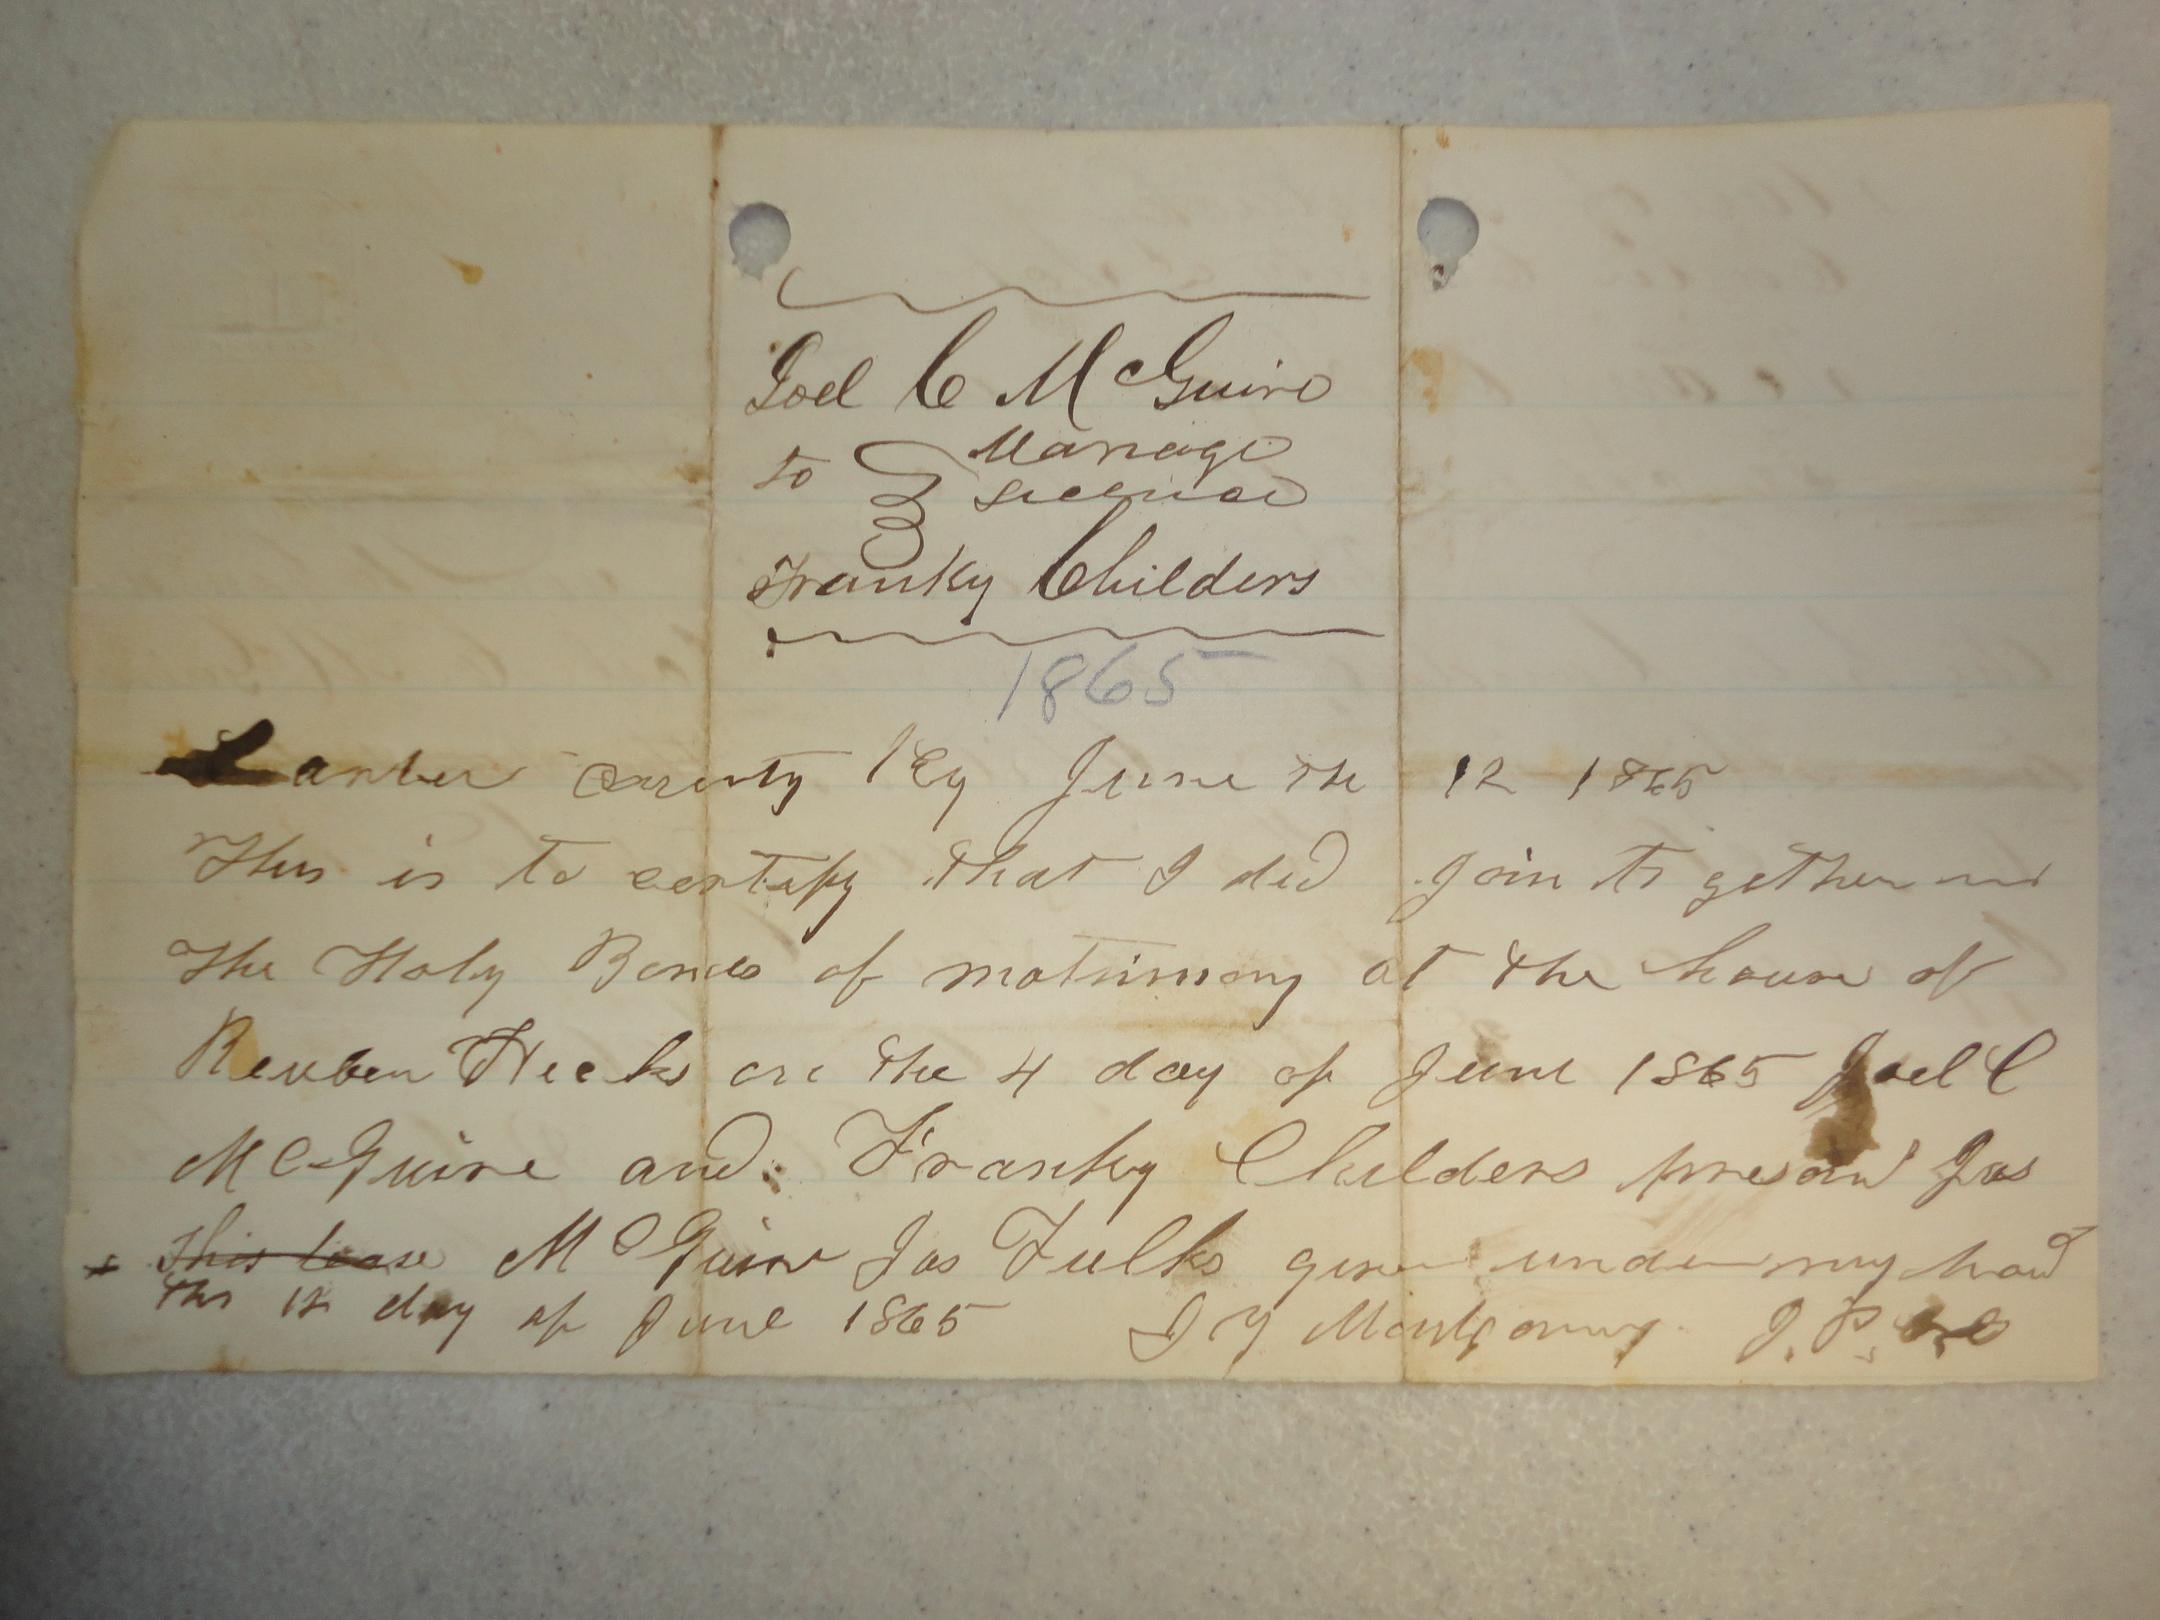 Joel C McGuire
to Mariage
License
Franky Childers
1865
Carter County Ky June the 12 1865
This is to certify that I did join to gether in
the Holy Bonds of matrimony at the house of
Reuben Heeks on the 4 day of June 1865 Joel C
McGuire and Franky Childers present Jas
McGuire Jas Fulks given under my hand
this 12 day of June 1865 J Y Montgomery J. P.